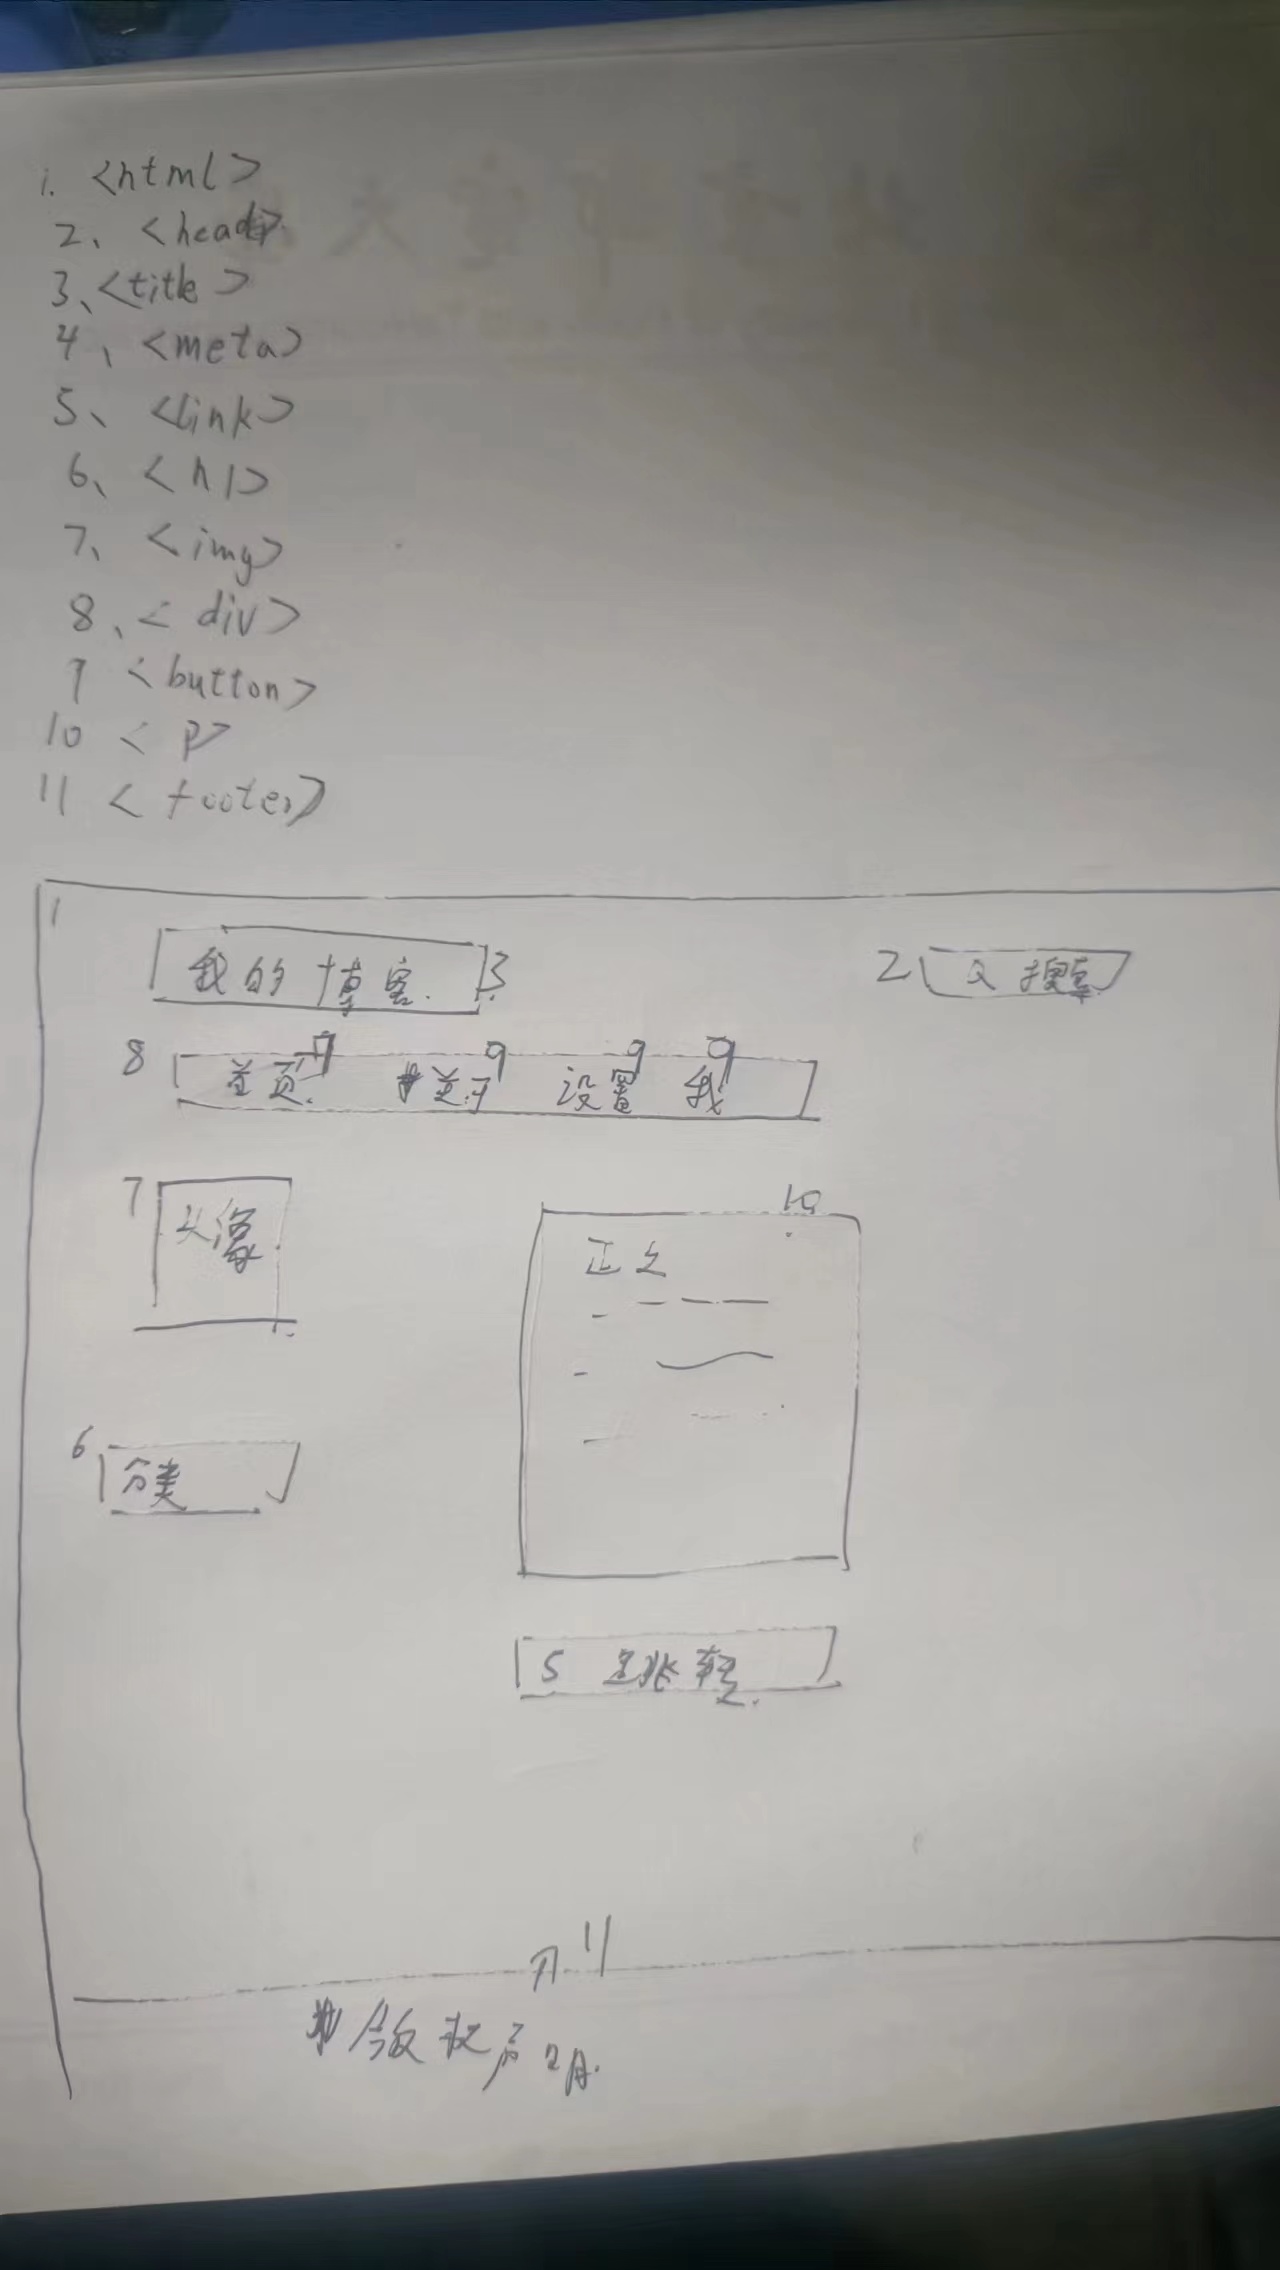 1. <html>
2、<head>
3、<title>
4、<meta>
5、<link>
6、<h1>
7、<img>
8、<div>
9 <button>
10 <p>
11 <footer>
1
我的博客 3
2 搜索
8
首页 9 9 设置 9 我 9
7
头像
10
正文
6
分类
5 跳转
11